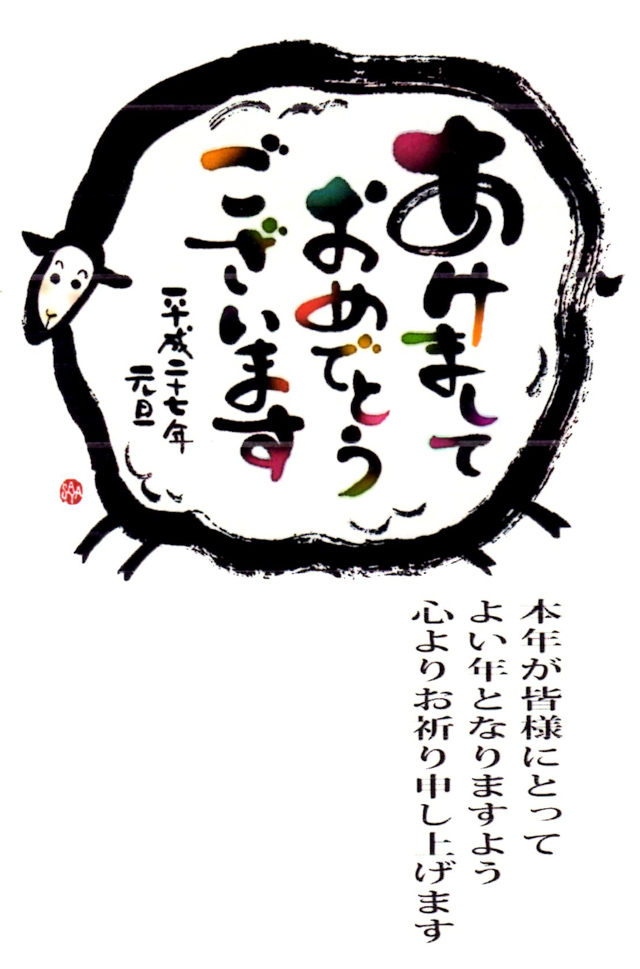 あけまして
おめでとう
ございます
平成二十七年
元旦
SAYA
本年が皆様にとって
よい年となりますよう
心よりお祈り申し上げます